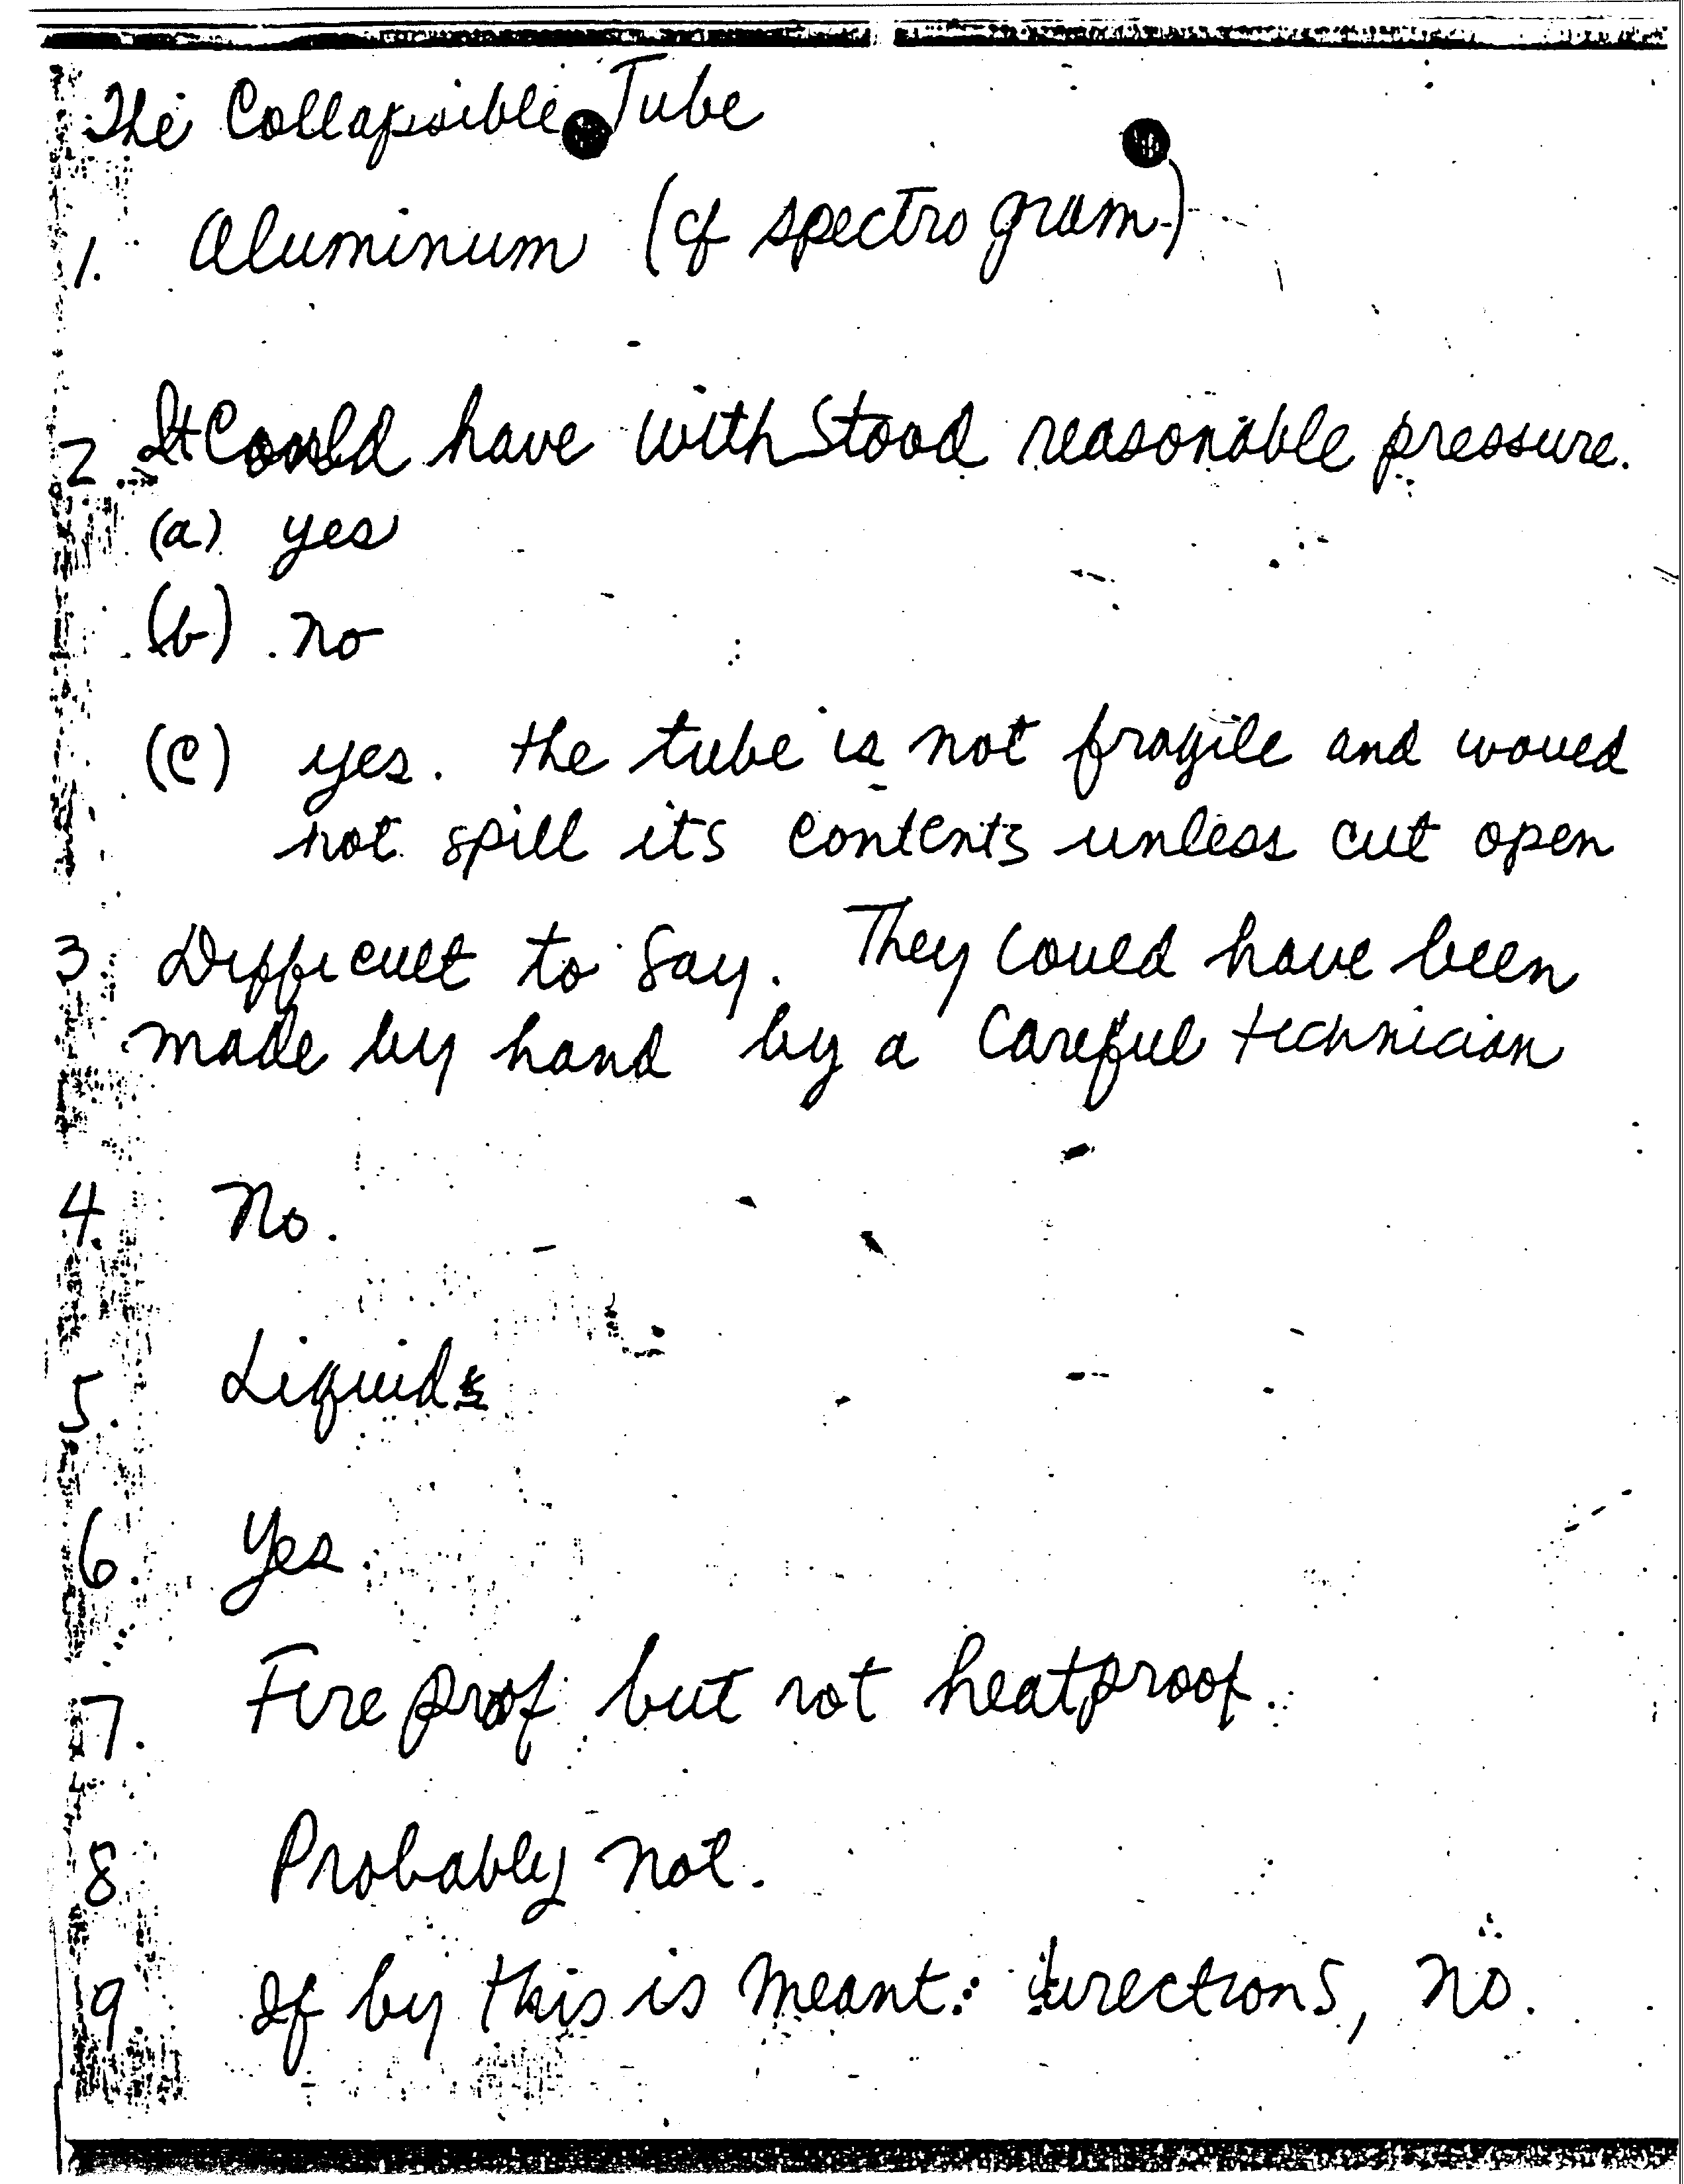 The Collapsible Tube
1. Aluminum (cf spectrogram)
2. It Could have withstood reasonable pressure.
(a) yes
(b) no
(c) yes. the tube is not fragile and would
not spill its contents unless cut open
3. Difficult to say. They could have been
made by hand by a careful technician
4. No.
5. Liquids
6. Yes
7. Fire prof but not heatproof.
8. Probably not.
9 If by this is meant: directions, no.